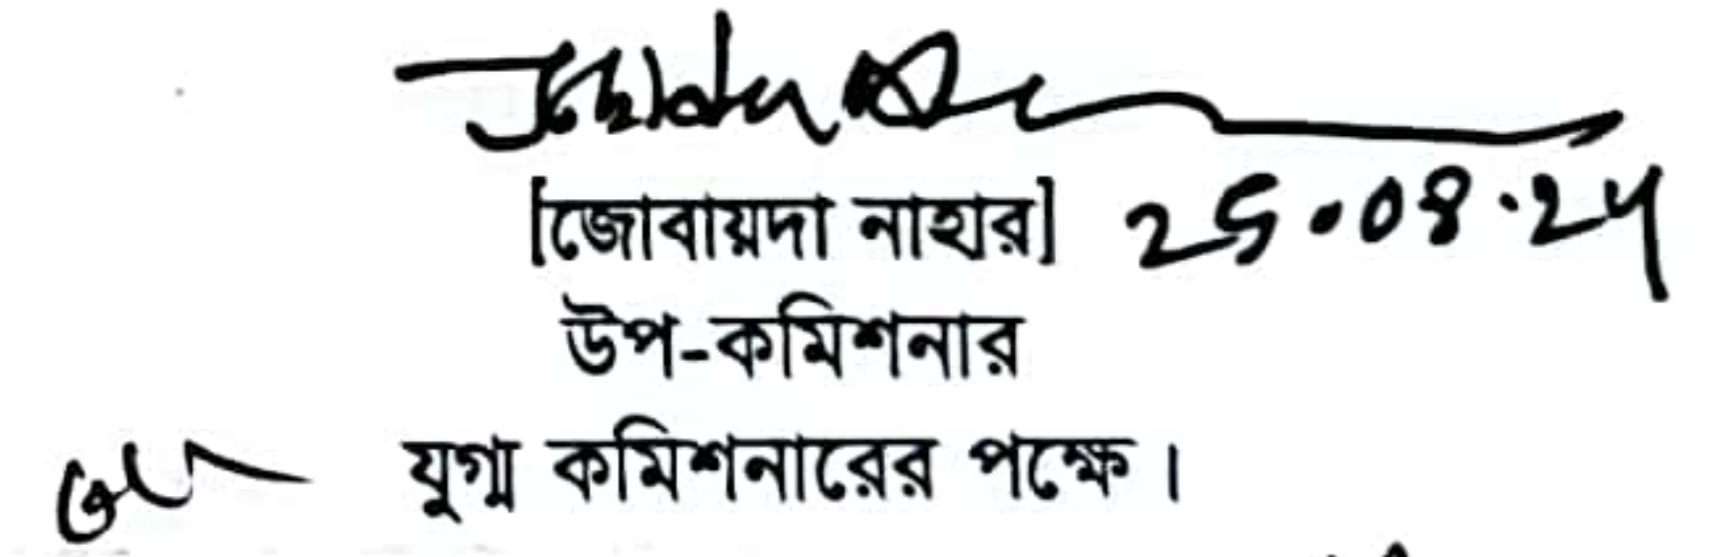 [জোবায়দা নাহার] 25.08.24
উপ-কমিশনার
যুগ্ম কমিশনারের পক্ষে।